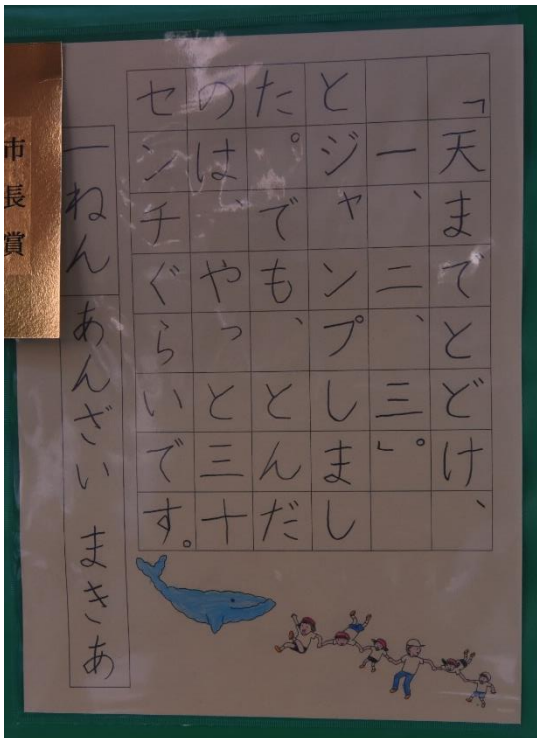 「天までとどけ、
一、二、三。」
とジャンプしまし
た。でも、とんだ
のは、やっと三十
センチぐらいです。
一ねん あんざい まきあ
市長賞